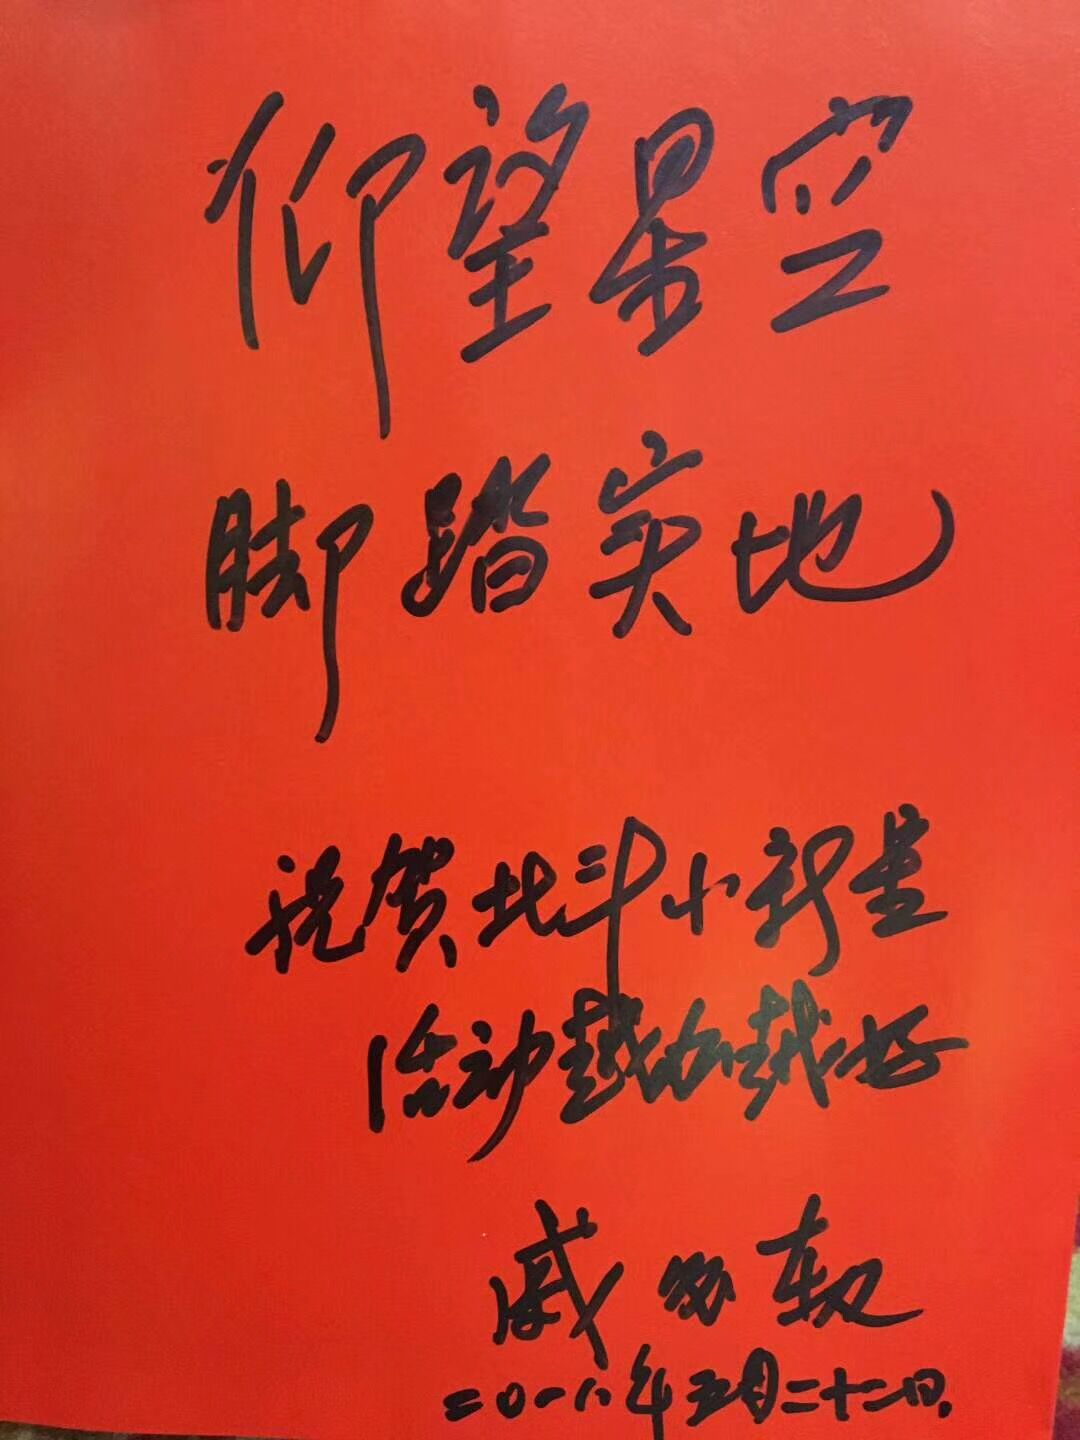 仰望星空
脚踏实地
祝贺北斗小新星
活动越办越好
戚发轫
二〇一八年五月二十二日.